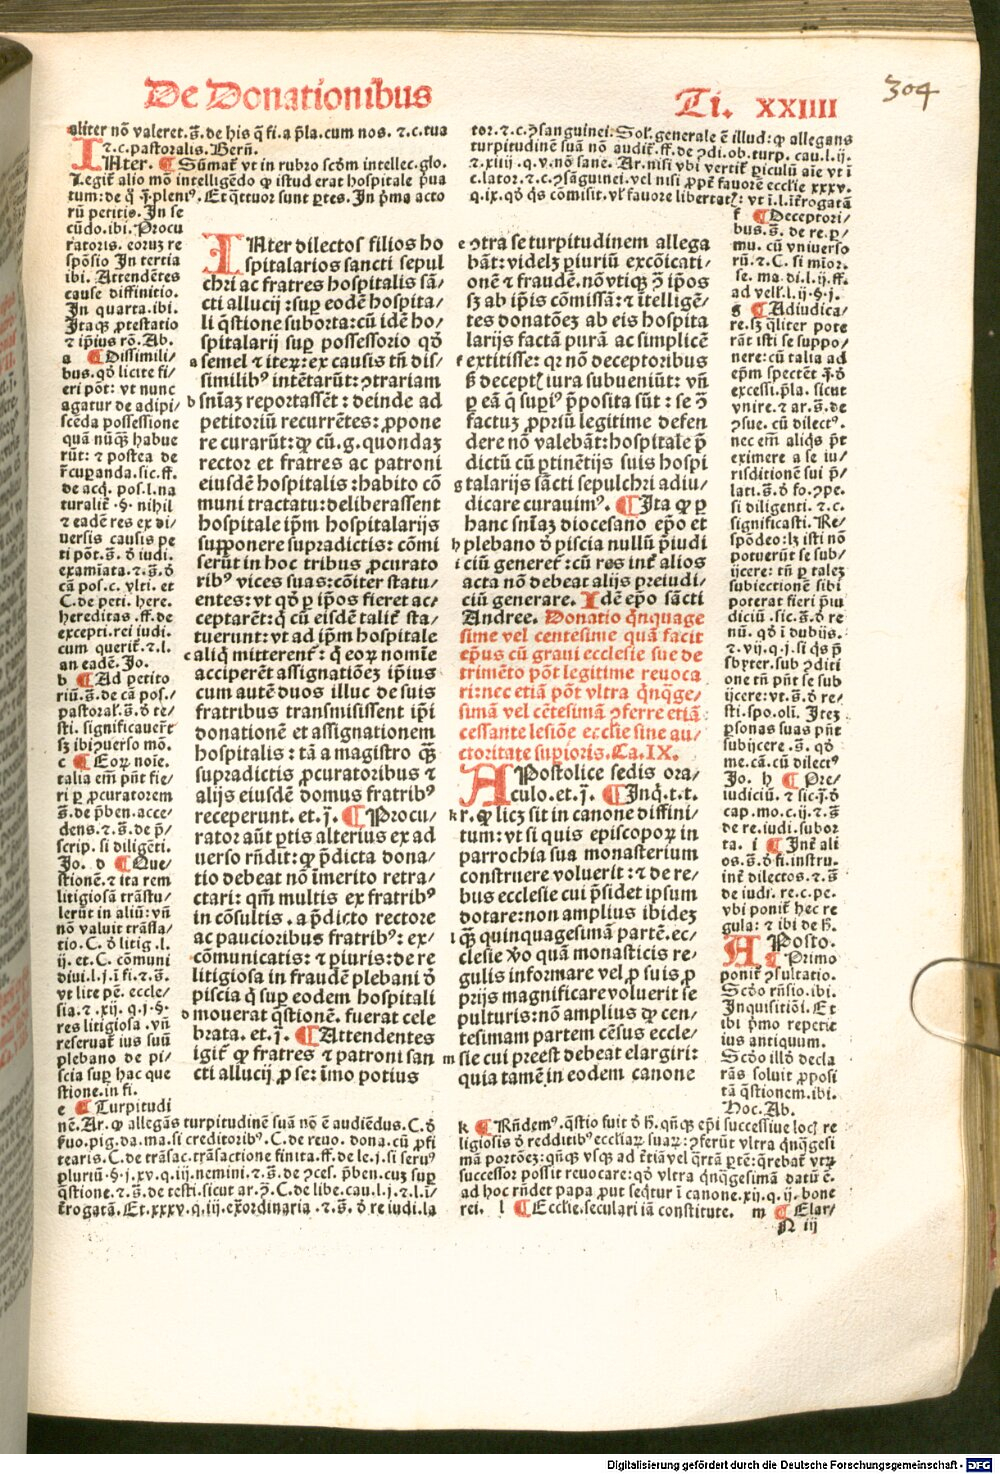 De Donationibus
Ti. XXIIII
304
aliter nō valeret. s̄. de his q̄ fi. a p̄la. cum nos. ⁊.c. tua
⁊.c. pastoralis. Bern̄.
INter. ¶ Sūmat᷑ vt in rubro scd̄m intellec. glo.
Legit᷑ alio mō intelligēdo ꝙ istud erat hospitale p̄ua
tum: de q̄ .j. pleniꝰ. Et q̄ttuor sunt ꝑtes. In p̄ma acto
rū petitio. In se
cūdo. ibi. Procu
ratoris. eoruꝫ re
spōsio In tertia
ibi. Attendētes
cause diffinitio.
In quarta. ibi.
Itaqꝫ ꝓtestatio
⁊ ip̄ius rō. Ab.
a ¶ Dissimili/
bus. qd̄ licite fi/
eri pōt: vt nunc
agatur de adipi/
scēda possessione
quā nūq̄ꝫ habue
rūt: ⁊ postea de
r̄cuꝑanda. sic. ff.
de acq̄. pos. l. na
turalit᷑ .§. nihil
⁊ eadē res ex di/
uersis causis pe
ti pōt. s̄. d̄ iudi.
examiata. ⁊. s̄. d̄
cā pos. c. vlti. et
C. de peti. here.
hereditas .ff. de
excepti. rei iudi.
cum querit᷑. ⁊. l.
an eadē. Jo.
b ¶ Ad petito
riū. s̄. de cā pos./
pastoral̓. s̄. d̄ te/
sti. significauer̄t
sꝫ ibi ꝯuerso mō.
c ¶ Eoꝝ noīe.
talia em̄ pn̄t fie/
ri ꝑ ꝓcuratorem
s̄. de p̄ben. acce/
dens. ⁊. s̄. de p̄/
scrip. si diligēti.
Jo. d ¶ Que/
stionē. ⁊ ita rem
litigiosā trāstu/
lerūt in aliū: vn̄
nō valuit trāsla/
tio. C. d̄ litig. l.
ij. et. C. cōmuni
diui. l. j. ī fi. ⁊. s̄.
vt lite pē. eccle/
sia. ⁊ .xij. q. j. §.
res litigiosa .vn̄
reseruat᷑ ius suū
plebano de pi/
scia suꝑ hac que
stione. in fi.
e ¶ Turpitudi
nē. Ar. ꝙ allegās turpitudinē suā nō ē audiēdus. C. d̄
ẜuo. pig. da. ma. si creditoribꝰ. C. de reuo. dona. cū ꝓfi
tearis. C. de trāsac. trāsactione finita. ff. de le. j. si seruꝰ
pluriū. §. j. xv. q. iij. nemini. ⁊. s̄. de ꝯces. p̄ben. cuꝫ suꝑ
q̄stione. ⁊. s̄. de testi. sicut ar. ꝯ̄. C. de libe. cau. l. j. ⁊. l. ī/
t̄rogatā. Et. xxxv. q. iij. exordinaria .⁊. s̄. d̄ re iudi. la
INter dilectos filios ho
spitalarios sancti sepul
chri ac fratres hospitalis sā/
cti allucij: suꝑ eodē hospita/
li q̄stione suborta: cū idē ho/
spitalarij suꝑ possessorio qd̄
a semel ⁊ iteꝝ: ex causis tn̄ dis/
similibꝰ intētarūt: ꝯtrariam
b sn̄iaꝫ reportassēt: deinde ad
petitoriū recurrētes: ꝓpone
re curarūt: ꝙ cū. g. quondaꝫ
rector et fratres ac patroni
eiusdē hospitalis: habito cō
muni tractatu: deliberassent
hospitale ip̄m hospitalarijs
supponere supradictis: cōmi
serūt in hoc tribus ꝓcurato
ribꝰ vices suas: cōiter statu/
entes: vt qd̄ ꝑ ip̄os fieret ac/
ceptarēt: q̄ cū eisdē talit᷑ sta/
tuerunt: vt ad ip̄m hospitale
c aliq̄ mitterent᷑: q̄ eoꝝ nomīe
acciperēt assignatiōeꝫ ip̄ius
cum autē duos illuc de suis
fratribus transmisissent ip̄i
donationē et assignationem
hospitalis: tā a magistro q̄ꝫ
supradictis ꝓcuratoribus ⁊
alijs eiusdē domus fratribꝰ
receperunt. et. j. ¶ Procu/
rator aūt ꝑtis alterius ex ad
uerso rn̄dit: ꝙ p̄dicta dona/
tio debeat nō īmerito retra/
ctari: qm̄ multis ex fratribꝰ
in cōsultis. a p̄dicto rectore
ac paucioribus fratribꝰ: ex/
cōmunicatis: ⁊ ꝑiuris: de re
litigiosa in fraudē plebani d̄
piscia q̄ suꝑ eodem hospitali
d mouerat q̄stionē. fuerat cele
brata. et. j. ¶ Attendentes
igit᷑ ꝙ fratres ⁊ patroni san
cti allucij ꝓ se: īmo potius
e ꝯtra se turpitudinem allega
bāt: videlꝫ ꝑiuriū excōicati/
onē ⁊ fraudē. nō vtiqꝫ ꝯ̄ ip̄os
sꝫ ab ip̄is cōmissā: ⁊ ītelligē/
tes donatōeꝫ ab eis hospita
larijs factā purā ac simplicē
f extitisse: qꝛ nō deceptoribus
ẜ decept iura subueniūt: vn̄
ꝑ eā q̄ supiꝰ p̄posita sūt: se ꝯ̄
factuꝫ ꝓpriū legitime defen
dere nō valebāt: hospitale p̄
dictū cū ꝑtinētijs suis hospi
g talarijs sācti sepulchri adiu/
dicare curauimꝰ. ¶ Ita ꝙ ꝑ
hanc sn̄iaꝫ diocesano ep̄o et
h plebano d̄ piscia nullū p̄iudi
i ciū generet᷑: cū res int᷑ alios
acta nō debeat alijs preiudi/
ciū generare. Idē ep̄o sācti
Andree. Donatio q̄nquage
sime vel centesime quā facit
ep̄us cū graui ecclesie sue de
trimēto pōt legitime reuoca
ri: nec etiā pōt vltra q̄nq̄ge/
simā vel cētesimā ꝯferre etiā
cessante lesiōe ecclie sine au/
ctoritate suꝑioris. Ca. IX.
APostolice sedis ora/
culo. et. j. ¶ Inq̄. t. t.
k r. ꝙ licꝫ sit in canone diffini/
tum: vt si quis episcoporꝝ in
parrochia sua monasterium
construere voluerit: ⁊ de re/
bus ecclesie cui p̄sidet ipsum
dotare: non amplius ibideꝫ
l q̄ꝫ quinquagesimā partē. ec/
clesie v̄o quā monasticis re/
gulis informare vel ꝓ suis ꝓ
prijs magnificare voluerit se
pulturis: nō amplius ꝙ cen/
tesimam partem cēsus eccle/
m sie cui preest debeat elargiri:
quia tamē in eodem canone
tor. ⁊.c. ꝯsanguinei. Sol᷑. generale ē illud: ꝙ allegans
turpitudinē suā nō audit᷑. ff. de ꝯdi. ob. turp. cau. l. ij.
⁊. xiiij. q. v. nō sane. Ar. nisi vbi vertit᷑ ꝑiculū aīe vt ī
c. lator. ⁊.c. ꝯsāguinei. vel nisi ꝓpt᷑ fauorē ecclie xxxv.
q. ix. qd̄ q̄s cōmisit. vl̓ fauore libertat: vt ī. l. īt̄rogatā
f ¶ Deceptori/
bus. s̄. de re. ꝑ/
mu. cū vniuerso
rū. ⁊. C. si mior.
se. ma. di. l. ij. ff.
ad vell̓. l. ij. §. j.
g ¶ Adiudica/
re. sꝫ q̄liter pote
rāt isti se suppo/
nere: cū talia ad
ep̄m spectēt q̄. d̄
excessi. p̄la. sicut
vnire. ⁊ ar. s̄. de
ꝯsue. cū dilectꝰ.
nec em̄ aliq̄s p̄t
eximere a se iu/
risditionē sui p̄/
lati. s̄. d̄ fo. ꝯpe.
si diligenti. ⁊.c.
significasti. Re/
spōdeo: lꝫ isti nō
potuerūt se sub/
ijcere: tn̄ ꝑ taleꝫ
subiectionē sibi
poterat fieri p̄iu
diciū. sic. s̄. d̄ re
nū. qd̄ ī dubijs.
⁊. vij. q. j. si q̄s p̄
sbyter. sub ꝯditi
one tn̄ pn̄t se sub
ijcere: vt. s̄. d̄ re/
sti. spo. oli᷑. Iteꝫ
ꝑsonas suas pn̄t
subijcere. s̄. qd̄
me. cā. cū dilectꝰ
Jo. h ¶ Pre/
iudiciū. ⁊ sic. j̄. d̄
cap. mo. c. ij. ⁊. s̄
de re. iudi. subor
ta. i ¶ Int᷑ ali
os. s̄. d̄ fi. instru.
int᷑ dilectos. ⁊. s̄
de iudi. re. c. pe.
vbi ponit᷑ hec re
gula: ⁊ ibi de h̄.
APosto.
¶ Primo
ponit᷑ ꝯsultatio.
Scd̄o rn̄sio. ibi.
Inquisitiōi. Et
ibi p̄mo repetit
ius antiquum.
Scd̄o illd̄ decla
rās soluit ꝓposi
tā q̄stionem. ibi.
Hoc. Ab.
k ¶ Rn̄demꝰ. q̄stio fuit d̄ h̄. qn̄qꝫ ep̄i successiue locꝭ re
ligiosis d̄ redditibꝰ eccliaꝝ suaꝝ: ꝯferūt vltra q̄nq̄gesi
mā portōeꝫ: qn̄qꝫ vsqꝫ ad t̄tiā vel q̄rtā ꝑtē: q̄rebat᷑ vtꝝ
successor possit reuocare: qd̄ vltra q̄nq̄gesimā datū ē.
ad hoc rn̄det papa ꝓut seq̄tur ī canone. xij. q. ij. bone
rei. l ¶ Ecclie. seculari iā constitute. m ¶ Elar/
N iij
Digitalisierung gefördert durch die Deutsche Forschungsgemeinschaft - DFG